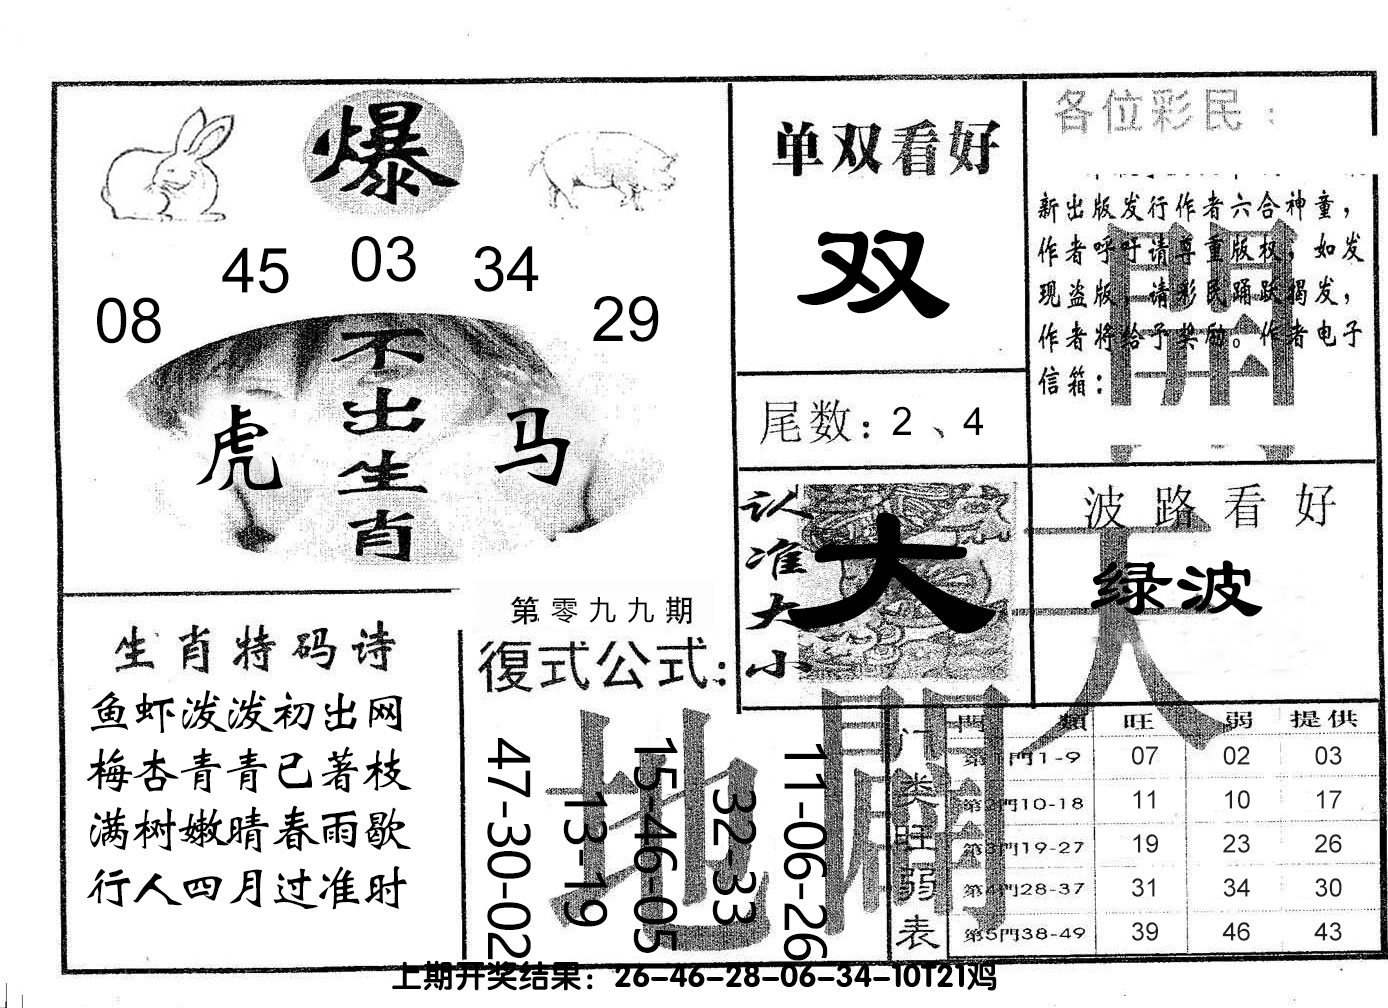 爆
08 45 03 34 29
不出生肖
虎 马
生肖特码诗
鱼虾泼泼初出网
梅杏青青已著枝
满树嫩晴春雨歇
行人四月过准时
第零九九期
復式公式:
47-30-02
13-19
15-46-05
32-33
11-06-26
单双看好
双
尾数: 2、4
认准大小
大
各位彩民:
新出版发行作者六合神童，
作者呼吁请尊重版权，如发
现盗版，请彩民踊跃揭发，
作者将给予奖励。作者电子
信箱:
波路看好
绿波
天
開
地
闢
门类旺弱表
門類 旺 弱 提供
第1門1-9 07 02 03
第2門10-18 11 10 17
第3門19-27 19 23 26
第4門28-37 31 34 30
第5門38-49 39 46 43
上期开奖结果：26-46-28-06-34-10T21鸡